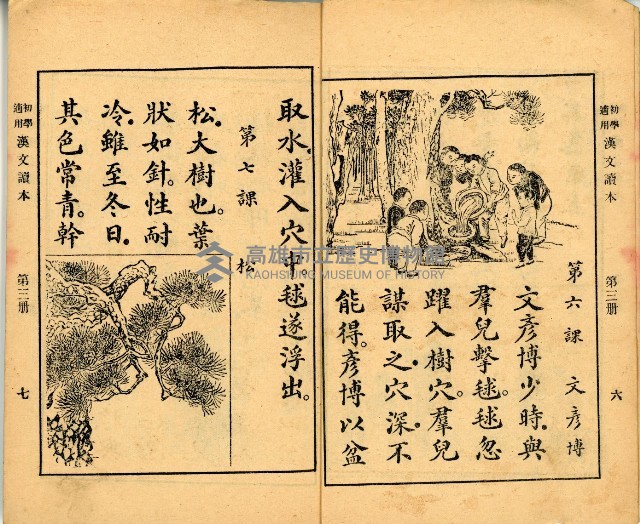 初學適用 漢文讀本 第三册 六
第六課 文彥博
文彥博少時。與
羣兒擊毬。毬忽
躍入樹穴。羣兒
謀取之。穴深不
能得。彥博以盆
取水灌入穴 毬遂浮出。
第七課 松
松。大樹也。葉
狀如針。性耐
冷。雖至冬日。
其色常青。幹
初學適用 漢文讀本 第三册 七
高雄市立歷史博物館
KAOHSIUNG MUSEUM OF HISTORY